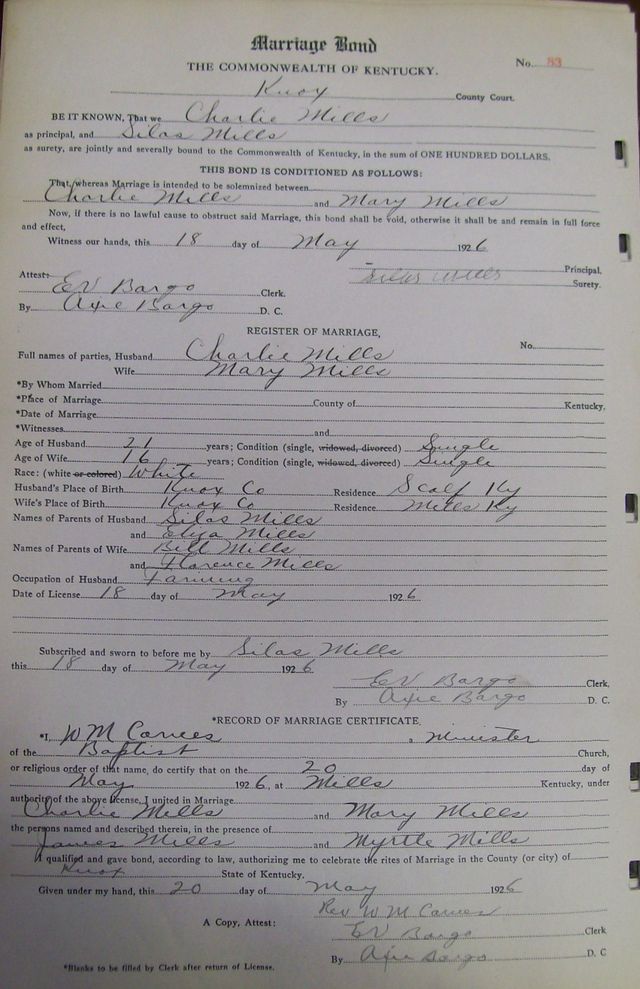 Marriage Bond
THE COMMONWEALTH OF KENTUCKY.
No. 83
Knox County Court.
BE IT KNOWN, That we Charlie Mills
as principal, and Silas Mills
as surety, are jointly and severally bound to the Commonwealth of Kentucky, in the sum of ONE HUNDRED DOLLARS.
THIS BOND IS CONDITIONED AS FOLLOWS:
That, whereas Marriage is intended to be solemnized between
Charlie Mills and Mary Mills
Now, if there is no lawful cause to obstruct said Marriage, this bond shall be void, otherwise it shall be and remain in full force
and effect,
Witness our hands, this 18 day of May 1926
Principal.
Silas Mills Surety.
Attest:
EV Bargo Clerk.
By Axie Bargo D. C.
REGISTER OF MARRIAGE,
Full names of parties, Husband Charlie Mills No.
Wife Mary Mills
*By Whom Married
*Place of Marriage County of Kentucky.
*Date of Marriage
*Witnesses and
Age of Husband 21 years; Condition (single, widowed, divorced) Single
Age of Wife 16 years; Condition (single, widowed, divorced) Single
Race: (white or colored) White
Husband's Place of Birth Knox Co Residence Scalf Ky
Wife's Place of Birth Knox Co Residence Mills Ky
Names of Parents of Husband Silas Mills
and Eliza Mills
Names of Parents of Wife Bill Mills
and Florence Mills
Occupation of Husband Farming
Date of License 18 day of May 1926
Subscribed and sworn to before me by Silas Mills
this 18 day of May 1926
EV Bargo Clerk,
By Axie Bargo D. C.
*RECORD OF MARRIAGE CERTIFICATE.
*I, W M Carnes, Minister
of the Baptist Church,
or religious order of that name, do certify that on the 20 day of
May 1926, at Mills Kentucky, under
authority of the above license, I united in Marriage
Charlie Mills and Mary Mills
the persons named and described therein, in the presence of
James Mills and Myrtle Mills
A qualified and gave bond, according to law, authorizing me to celebrate the rites of Marriage in the County (or city) of
Knox State of Kentucky.
Given under my hand, this 20 day of May 1926
Rev W M Carnes
A Copy, Attest: EV Bargo Clerk
By Axie Bargo D. C
*Blanks to be filled by Clerk after return of License.